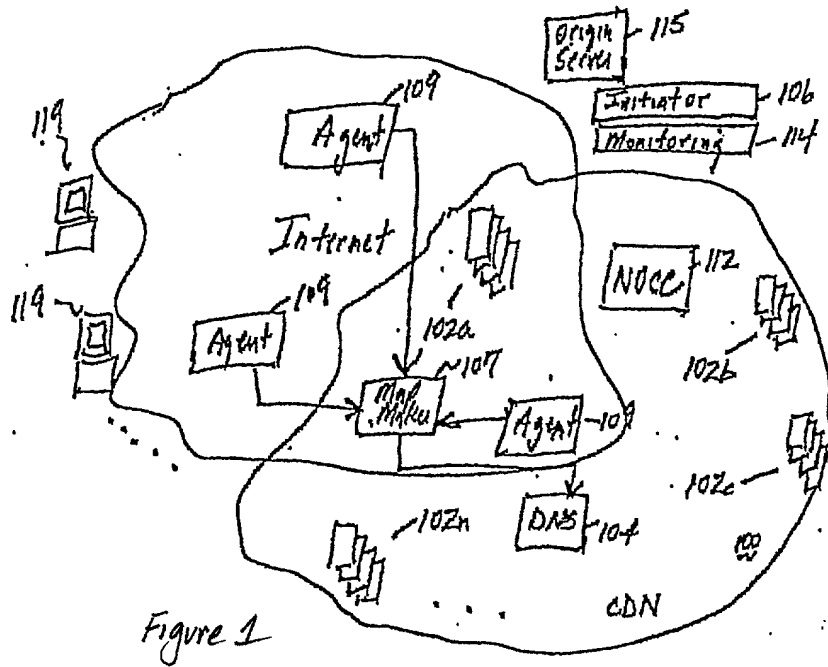 Origin
Server
115
Initiator
106
Monitoring
114
109
Agent
119
Internet
NOCC
112
119
109
Agent
102a
107
Map
Maker
102b
Agent
109
102c
102n
DNS
104
100
CDN
Figure 1